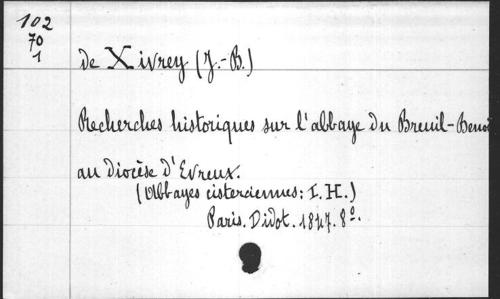 102
70
1
de Xivrey (J.-B.)
Recherches historiques sur l'abbaye du Breuil-Benoi
au diocèse d'Evreux.
(Abbayes cisterciennes: I. H.)
Paris. Didot. 1847. 8º.